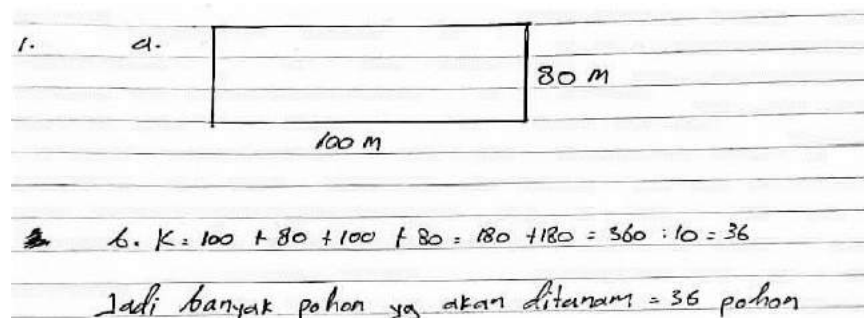 1. a.
80 m
100 m
b. K = 100 + 80 + 100 + 80 = 180 + 180 = 360 : 10 = 36
Jadi banyak pohon yg akan ditanam = 36 pohon